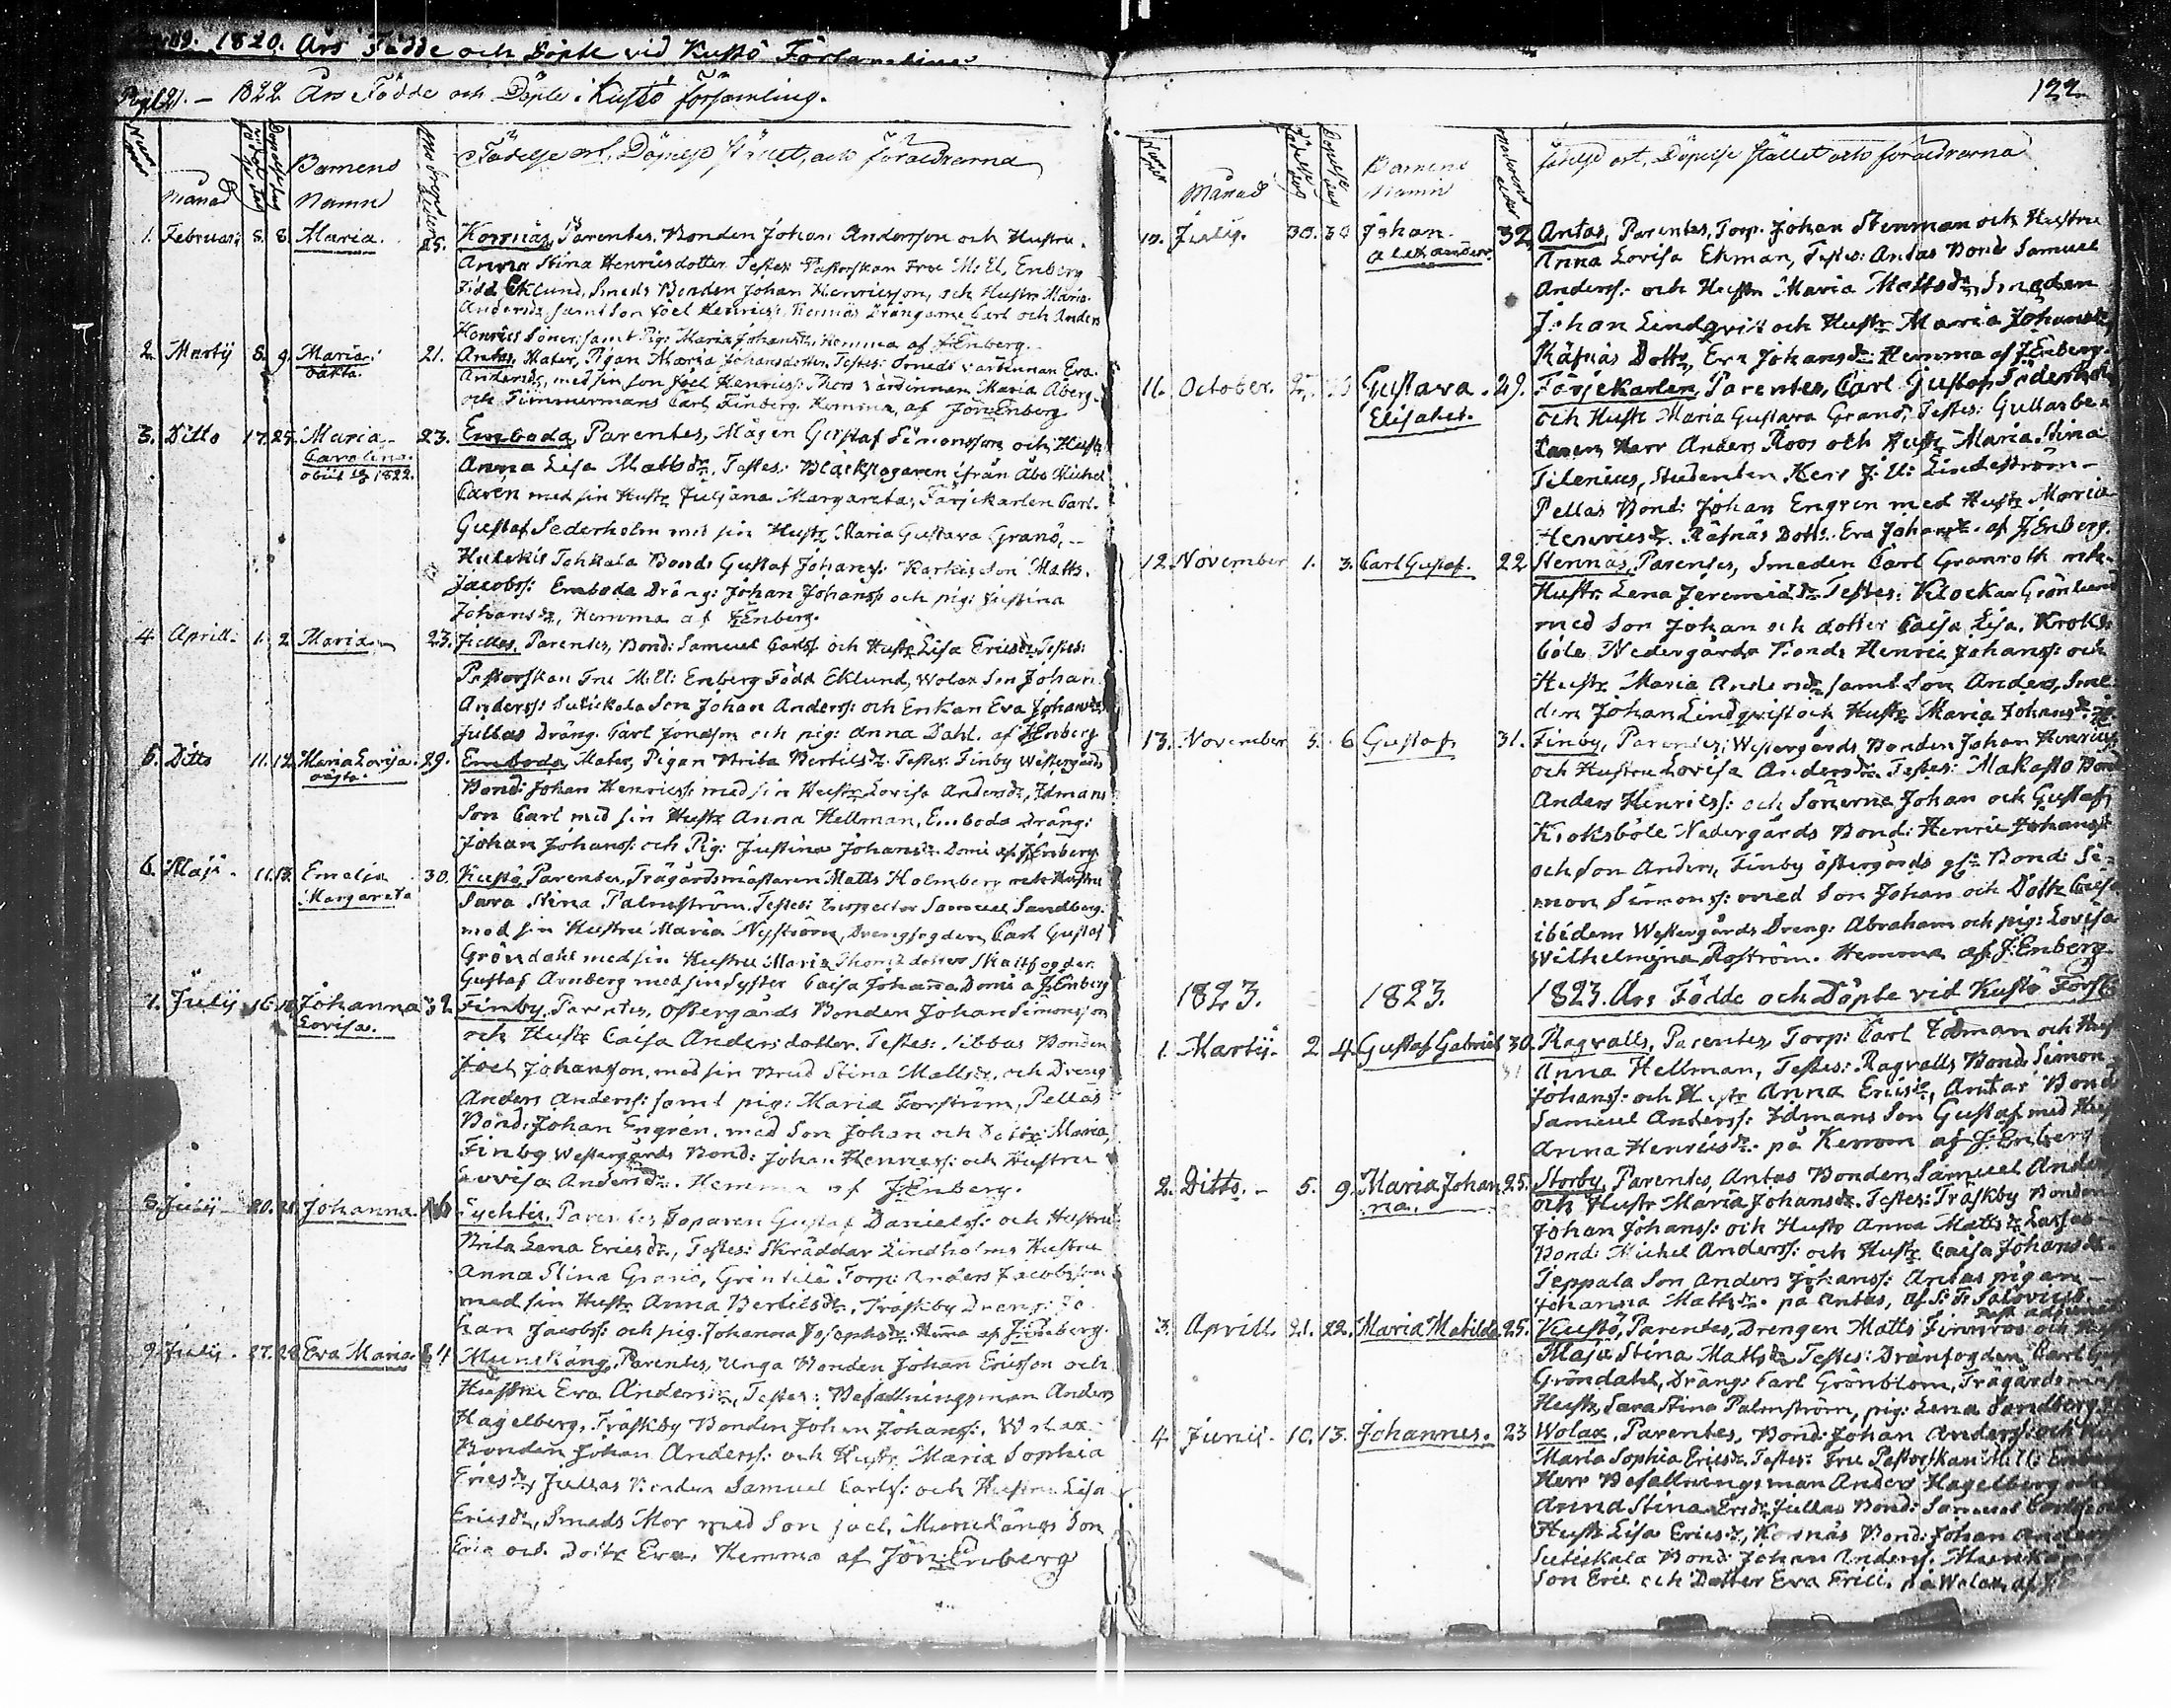 1820. Års Födde och Döpte vid Kustö Församling
Pag. 121. - 1822 Års Födde och Döpte i Kustö församling.
Månad
Barnens
Namn
Födelse ort, Döpelse stället, och föräldrarna
1. Februar: 5. 8. Maria. 25. Kornäs, Parentes, Bonden Johan Andersson och Hustru
Anna Stina Henricsdotter Testes: Pastorskan Fru M: El, Enberg
Född Eklund, Smeds Bonden Johan Henricsson, och Hustr Maria
Andersdr samt Son Joel Henricss: Kornäs Drängarne Carl och Anders
Henrics Söner, samt Pig: Maria Johansdr, Hemma af J:Enberg.
2. Martij 8. 9. Maria. 21. Antas, Mater, Pigan Maria Johansdotter, Testes: Smeds Värdinnan Eva
oäkta.
Andersdr, med sin son Joel Henricss: Thors Värdinnan Maria Åberg
och Timmermans Carl Finberg. Hemma, af Jon:Enberg
3. Ditto 17. 25. Maria 23. Emboda, Parentes, Mågen Gustaf Simonsson och Hustr
Carolina.
obiit 1822.
Anna Lisa Mattsdr, Testes: Bläckslagaren ifrån Åbo Michel
Caren med sin Hustr Juliana Margareta, Färjekarlen Carl
Gustaf Sederholm med sin Hustr Maria Gustava Granö,
Tohkala Bonds Gustaf Johanss: Karkis Son Matts
Jacobss: Emboda Dräng: Johan Johanss och pig: Justina
Johansdr, Hemma af J:Enberg.
4. Aprill. 1. 2. Maria 23. Jullas, Parentes, Bond: Samuel Carlss och Hustr Lisa Ericsdr, Testes:
Pastorskan Fru M:El: Enberg Född Eklund, Wolax Son Johan
Anderss: Sutiskala Son Johan Anderss: och Enkan Eva Johansdr
Jullas Dräng Carl Jonasson och pig: Anna Dahl. af J:Enberg
5. Ditto 11. 12. Maria Lovisa. 29. Emboda, Mater, Pigan Brita Bertilsdr. Testes: Finby Westergårds
oägta.
Bond: Johan Henricss: med sin Hustr Lovisa Andersdr, Idmans
Son Carl med sin Hustr Anna Hellman, Emboda Dräng:
Johan Johanss: och Pig: Justina Johansdr. Domi af J:Enberg
6. Maji. 11. 13. Emelia 30. Kustö, Parentes, Trägårdsmästaren Matts Holmberg och Hustru
Margareta
Sara Stina Palmström. Testes: Inspector Samuel Sandberg
med sin Hustru Maria Nyström, Drengfogden Carl Gustaf
Gröndahl med sin Hustru Maria Thomasdotter
Gustaf Arnberg med sin Syster Caisa Johanna, Domi a J:Enberg
7. Julij 16. Johanna 32. Finby, Parentes, Östergårds Bonden Johan Simonsson
Lovisa.
och Hustr Caisa Andersdotter. Testes: Sibbas Bonden
Joel Johansson, med sin Brud Stina Mattsdr, och Dreng
Anders Anderss: samt pig: Maria Forström, Pellas
Bond: Johan Engrén, med Son Johan och Dottr: Maria,
Finby Westergårds Bond: Johan Henricss: och Hustru
Lovisa Andersdr. Hemma af J:Enberg.
8. Julij 20. 21. Johanna. Parentes, Gustaf Danielss: och Hustru
Brita Lena Ericsdr, Testes: Skräddar Lindholms Hustru
Anna Stina Granö, Torp: Anders Jacobsson
med sin Hustr Anna Bertilsdr, Träskby Dreng: Jo
han Jacobss: och pig: Johanna Josephsdr. Hema af J:Enberg.
9. Julij. 27. 28. Eva Maria. Munkäng, Parentes, Unga Bonden Johan Ericsson och
Hustru Eva Andersdr, Testes: Befallningsman Anders
Hagelberg, Träskby Bonden Johan Johanss:, Wolax
Bonden Johan Anderss: och Hustr Maria Sophia
Ericsdr, Jullas Bonden Samuel Carls: och Hustru Lisa
Ericsdr, Smeds Mor med Son Joel, Munkängs Son
Eric och Dottr Eva. Hemma af Jon:Enberg
122
Månad
Barnens
Namn
Födelse ort, Döpelse stället och föräldrarna
10. Julij. 30. 30 Johan 32 Antas, Parentes, Torp. Johan Stenman och Hustru
Alexander.
Anna Lovisa Ekman, Testes: Antas Bond Samuel
Anderss: och Hustr Maria Mattsdr, Smeden
Johan Lindqvist och Hustr Maria Johansdr,
Räfnäs Dottr, Eva Johansdr: Hemma af J:Enberg.
11. October. 27. Gustava 29. Färjekarlen, Parentes, Carl Gustaf Söderholm
Elisabet.
och Hustr Maria Gustava Granö, Testes: Gullasbe
Herr Anders Roos och Hustr Maria Stina
Tilenius, Studenten Herr J: U: Lindeström
Pellas Bond: Johan Engren med Hustr Maria
Henricsdr. Räfnäs Dottr. Eva Johansdr. af J:Enberg.
12. November 1. 3. Carl Gustaf. 22 Hennäs, Parentes, Smeden Carl Granroth och
Hustr. Lena Jeremiædr, Testes: Klockar Grönlund
med Son Johan och dotter Caisa Lisa, Kroks-
böle Nedergårds Bonds Henric Johanss: och
Hustr Maria Andersdr samt Son Anders, Sme-
den Johan Lindqvist och Hustr Maria Johansdr
13. November 5. 6. Gustaf 31. Finby, Parentes, Westergårds Bonden Johan Henricss
och Hustru Lovisa Andersdr. Testes: Makasto Bond
Anders Henricss: och Sönerna Johan och Gustaf,
Kroksböle Nedergårds Bond: Henric Johanss:
och Son Anders, Finby östergårds Bond: Si-
mon Simonss: med Son Johan och Dottr Caisa
ibidem Westergårds Dreng: Abraham och pig: Lovisa
Wilhelmina Roström. Hemma af J:Enberg.
1823. 1823. 1823. Års Födde och Döpte vid Kustö Förs
1. Martij. 2 4. Gustaf Gabriel 30. Ragvalls, Parentes, Torp: Carl Idman och Hust
Anna Hellman, Testes: Ragvalls Bond: Simon
Johanss: och Hustr Anna Ericsdr, Antas Bond
Samuel Anderss: Idmans Son Gustaf med Hust
Anna Henricsdr. på Kerrom af J:Enberg
2. Ditto. 5. 9. Maria Johan 25. Storby, Parentes, Antas Bonden Samuel Anders
na.
och Hustr Maria Johansdr. Testes: Träskby Bonden
Johan Johanss: och Hustr Anna Mattsdr
Bond: Michel Anderss: och Hustr Caisa Johansdr.
Teppala Son Anders Johanss: Antas pigan
Johanna Mattsdr. på Antas, af S: F: Salovius.
3. Aprill 21. 22. Maria Matilda. 25. Kustö, Parentes, Drengen Matts Finnros och
Maja Stina Mattsdr, Testes: Dränfogden Carl
Gröndahl, Dräng: Carl Grönblom, Trägårdsm
Hustr, Sara Stina Palmström, pig: Lena Sandberg
4. Junij. 10. 13. Johannes. 23 Wolax, Parentes, Bond: Johan Anderss och
Maria Sophia Ericsdr. Testes: Fru Pastorskan M:El: Enb
Herr Befallningsman Anders Hagelberg
Anna Stina Ersdr Jullas Bond: Samuel Carlss
Hustr Lisa Ericsdr, Kornäs Bond: Johan Anders
Sutiskala Bond Johan Anders. Munkäng
Son Eric och Dotter Eva på Wolax, af J: